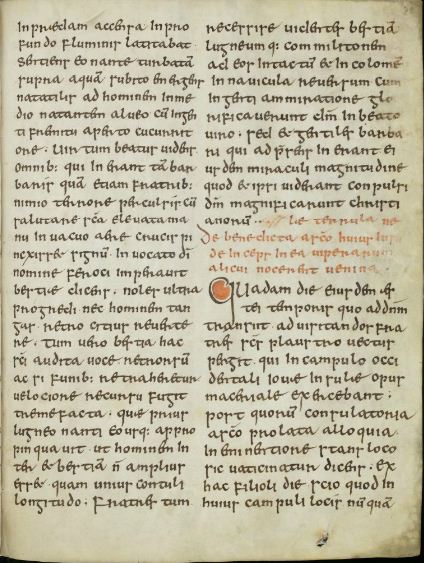 in praedam accensa in pro
fundo fluminis latitabat
sentiens eo nante turbatam
supra aquam subito emergens
natatilis ad hominem in me
dio natantem alueo cum ingen
ti fremitu aperto cucurrit
ore · uir tum beatus uidens
omnibus qui inerant tam bar
baris quam etiam fratribus
nimio terrore perculsis cum
salutare sca eleuata ma
nu in uacuo aere crucis pi
nxisset signum inuocato di
nomine feroci imperauit
bestiae dicens · noles ultra
progredi nec hominem tan
gas · retro citius reuerte
re · tum uero bestia hac
sci audita uoce retrorsum
ac si funibus retraheretur
uelociore recursu fugit
tremefacta · quae prius
lugneo nanti eousque appro
pinquauit ut hominem in
ter & bestiam non amplius
esset quam unius contuli
longitudo · fratres tum
recessisse uidentes bestiam
lugneumque commilitonem
ad eos intactum & incolomem
in nauicula reuersum cum
ingenti ammiratione glo
rificauerunt dm in beato
uiro · sed & gentiles barba
ri qui ad praesens inerant ei
usdem miraculi magnitudine
quod & ipsi uiderant conpulsi
dm magnificarunt christi
anorum
de benedicta
Quadam die eiusdem aes
tei temporis quo
transiit ad uisitandos fra
tres scs plaustro uectus
pergit qui in campulo occi
dentali iouae insulae opus
materiale exercebant ·
post quorum consulatoria
a sco prolata alloquia
in eminentiore stans loco
sic uaticinatur dicens · ex
hac filioli die scio quod in
huius campuli locis numquam